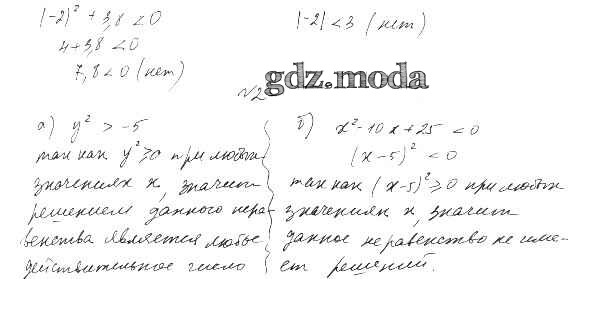 (-2)² + 3,8 < 0
4 + 3,8 < 0
7,8 < 0 (нет)
|-2| < 3 (нет)
№2
gdz.moda
а) y² > -5
так как y² ≥ 0 при любых
значениях х, значит
решением данного нера-
венства является любое
действительное число
б) x² - 10x + 25 < 0
(x - 5)² < 0
так как (x - 5)² ≥ 0 при любых
значениях х, значит
данное неравенство не име-
ет решений.